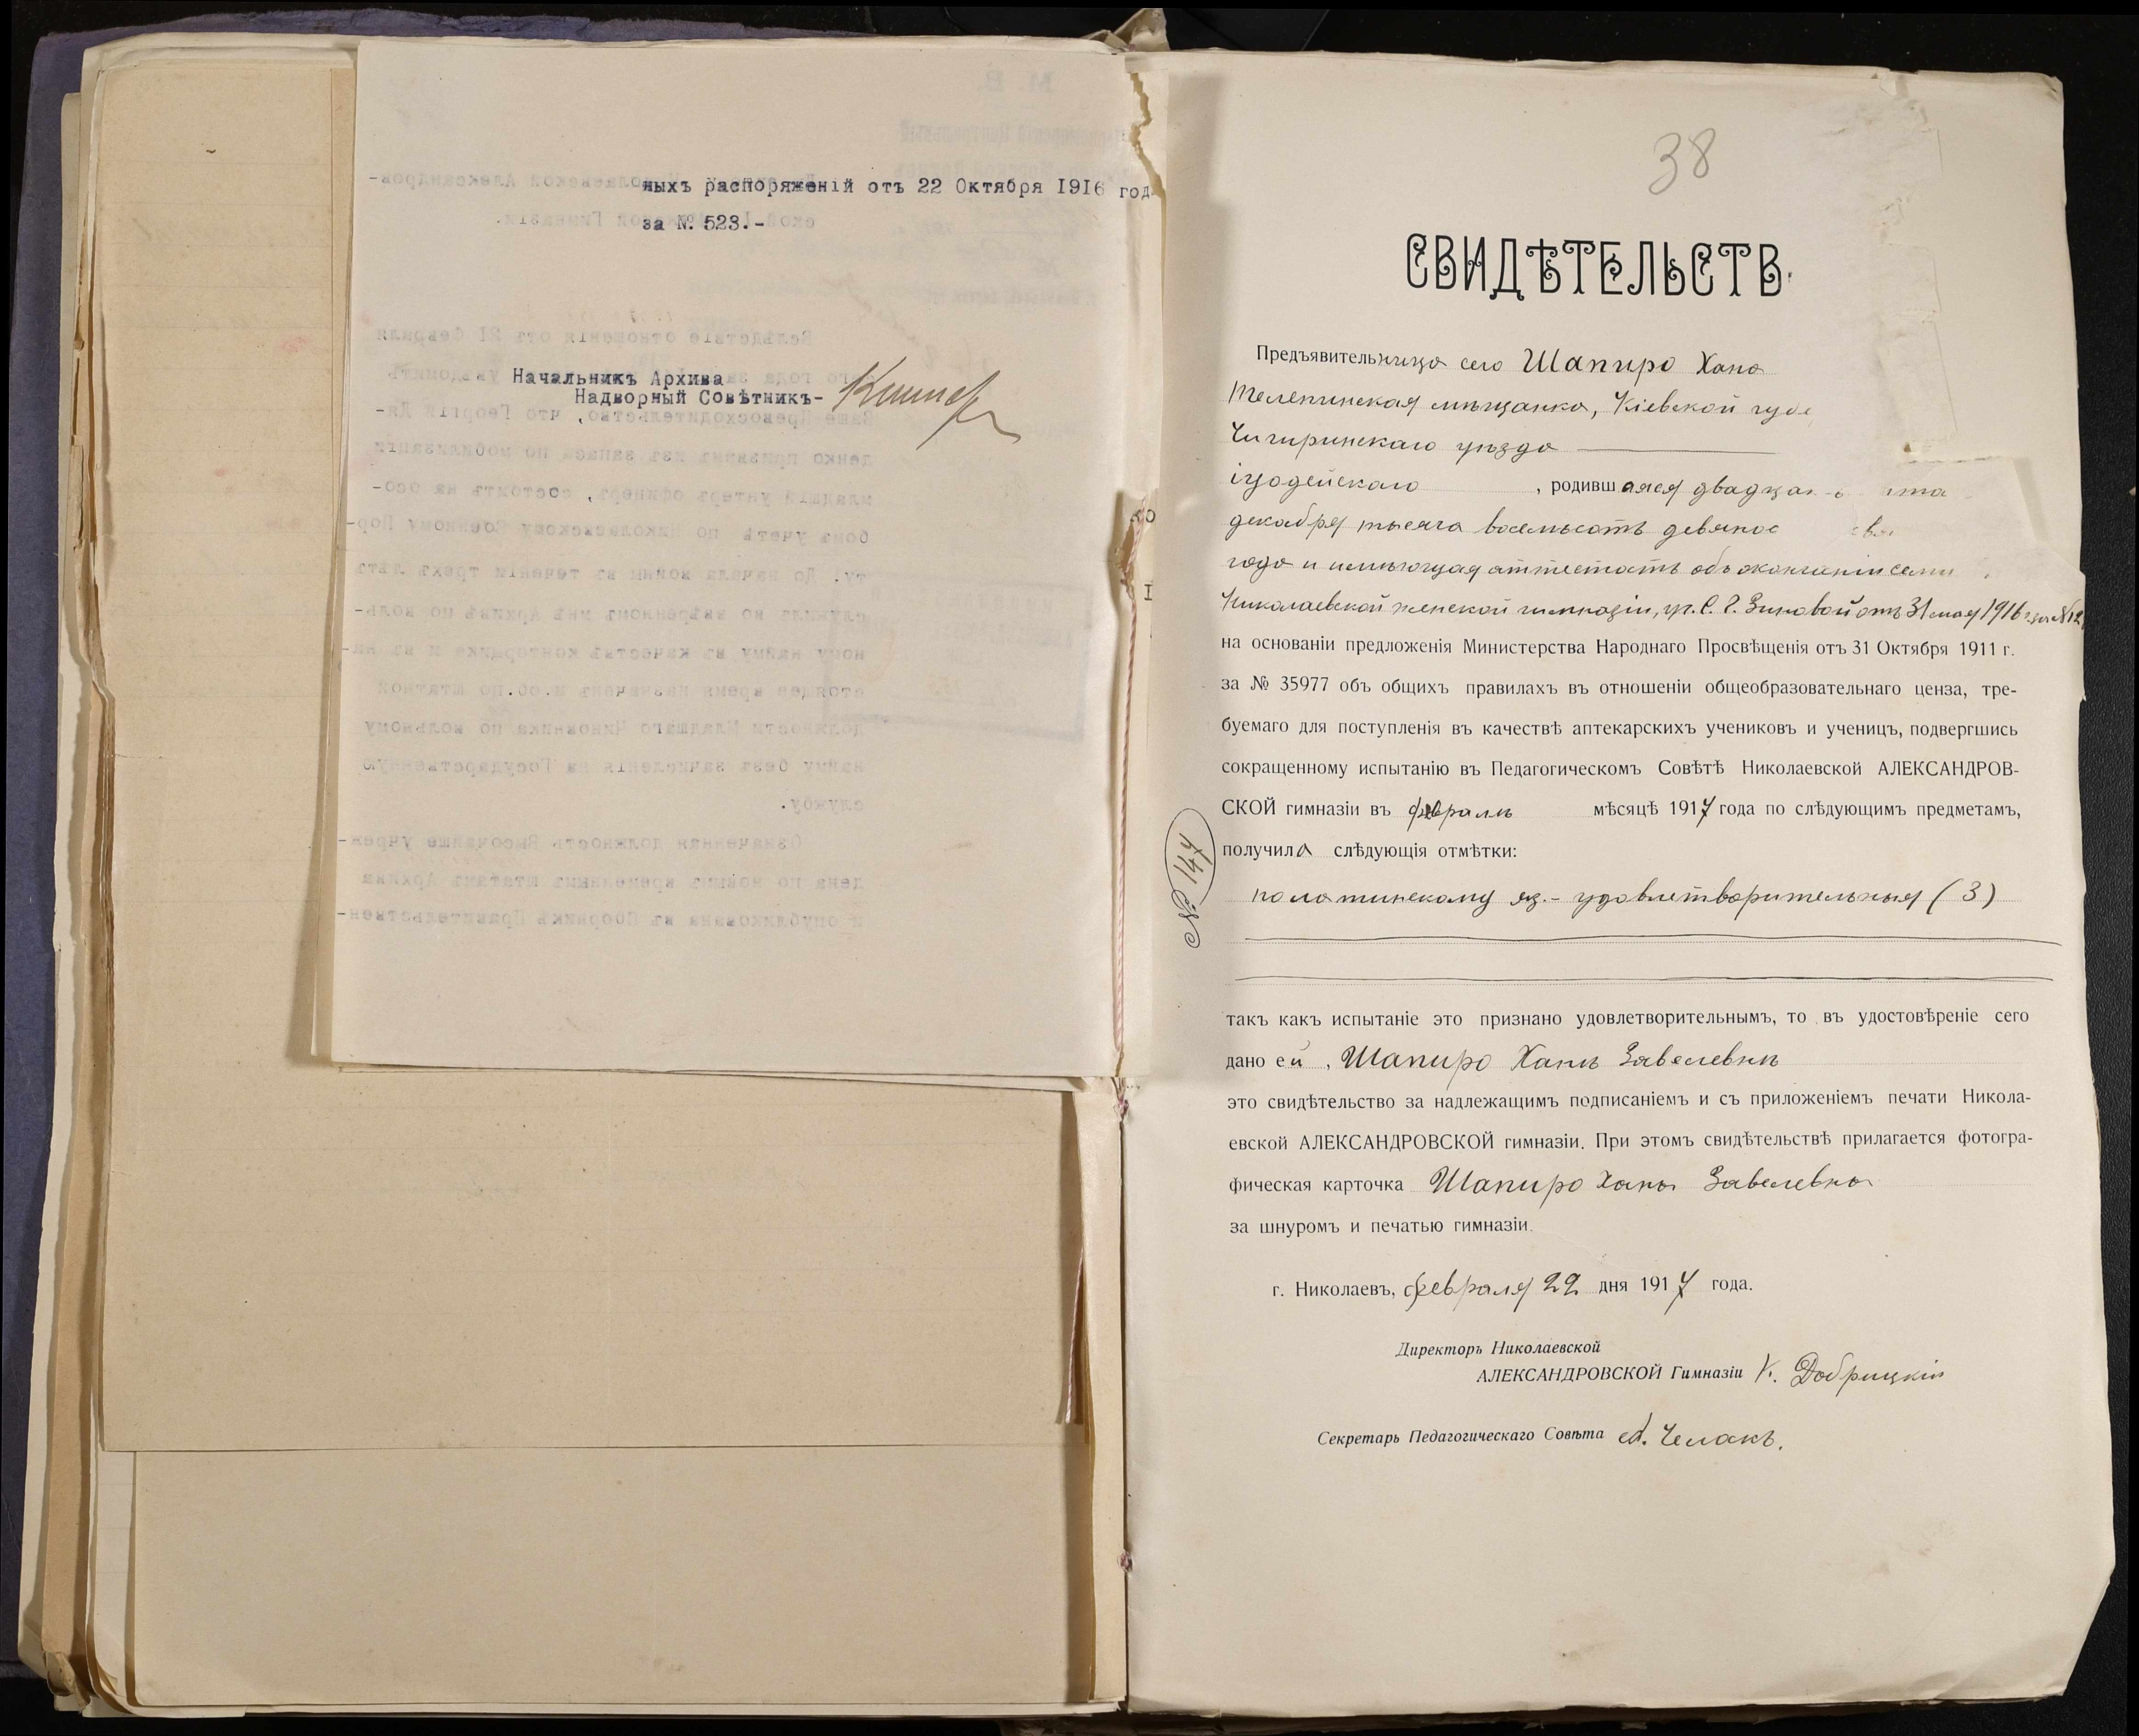 ныхъ распоряженій отъ 22 Октября 1916 год
за № 523.-
Начальникъ Архива
Надворный Совѣтникъ-
38
СВИДѢТЕЛЬСТВ
Предъявительница сего Шапиро Хана
Телепинская мѣщанка, Кіевской губе
Чигиринскаго уѣзда
іудейскаго , родившаяся двадцат
декабря тысяча восемьсотъ девянос
года и имѣющая аттестатъ объ окончаніи семи
Николаевской женской гимназіи, уч. С. Г. Зиновой отъ 31 мая 1916 г. за № 12
на основаніи предложенія Министерства Народнаго Просвѣщенія отъ 31 Октября 1911 г.
за № 35977 объ общихъ правилахъ въ отношеніи общеобразовательнаго ценза, тре-
буемаго для поступленія въ качествѣ аптекарскихъ учениковъ и ученицъ, подвергшись
сокращенному испытанію въ Педагогическомъ Совѣтѣ Николаевской АЛЕКСАНДРОВ-
СКОЙ гимназіи въ февралѣ мѣсяцѣ 1917 года по слѣдующимъ предметамъ,
получила слѣдующія отмѣтки:
№ 147
по латинскому яз.- удовлетворительныя (3)
такъ какъ испытаніе это признано удовлетворительнымъ, то въ удостовѣреніе сего
дано ей , Шапиро Ханѣ Завелевнѣ
это свидѣтельство за надлежащимъ подписаніемъ и съ приложеніемъ печати Никола-
евской АЛЕКСАНДРОВСКОЙ гимназіи. При этомъ свидѣтельствѣ прилагается фотогра-
фическая карточка Шапиро Хана Завелевна
за шнуромъ и печатью гимназіи.
г. Николаевъ, февраля 22 дня 1917 года.
Директоръ Николаевской
АЛЕКСАНДРОВСКОЙ Гимназіи К. Добрицкій
Секретарь Педагогическаго Совѣта Челакъ.